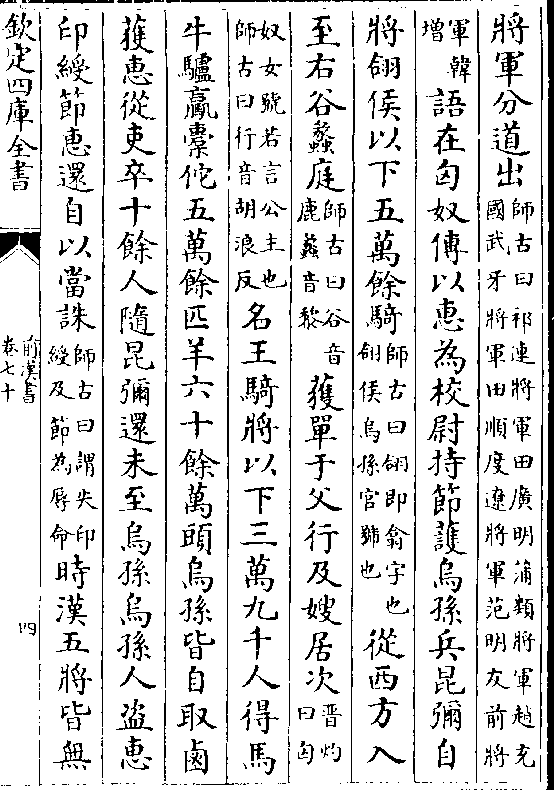 將軍分道出師古曰祁連將軍田廣明蒲類將軍趙充國武牙將軍田順度遼將軍范明友前將
軍韓增語在匈奴傳以惠為校尉持節護烏孫兵昆彌自
將翎侯以下五萬餘騎師古曰翎即翕字也翎侯烏孫官號也從西方入
至右谷蠡庭師古曰谷音鹿蠡音黎獲單于父行及嫂居次晉灼曰匈
奴女號若言公主也師古曰行音胡浪反名王騎將以下三萬九千人得馬
牛驢驘橐佗五萬餘匹羊六十餘萬頭烏孫皆自取鹵
獲惠從吏卒十餘人隨昆彌還未至烏孫烏孫人盗惠
印綬節惠還自以當誅師古曰謂失印綬及節為辱命時漢五將皆無
欽定四庫全書
前漢書
卷七十
四